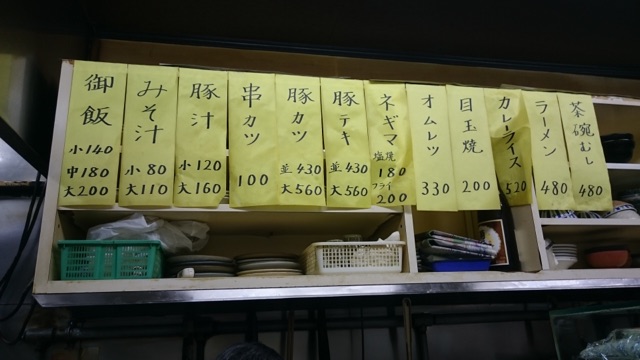 御飯
小140
中180
大200
みそ汁
小80
大110
豚汁
小120
大160
串カツ
100
豚カツ
並430
大560
豚テキ
並430
大560
ネギマ
塩焼
180
フライ
200
オムレツ
330
目玉焼
200
カレーライス
520
ラーメン
480
茶碗むし
480